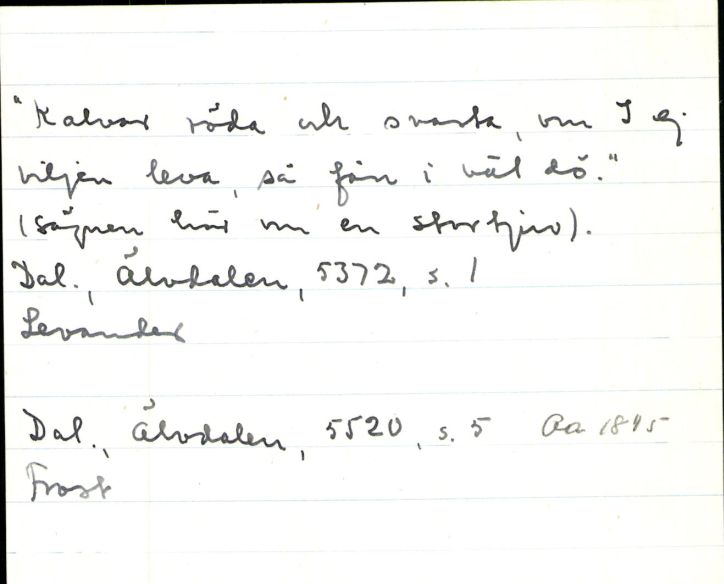 "Kalvar röda och svarta, om I ej
viljen leva, så fån i väl dö."
(sägnen här om en stortjuv).
Dal., Älvdalen, 5372, s. 1
Levander
Dal., Älvdalen, 5520, s. 5 Aa 1845
Frost